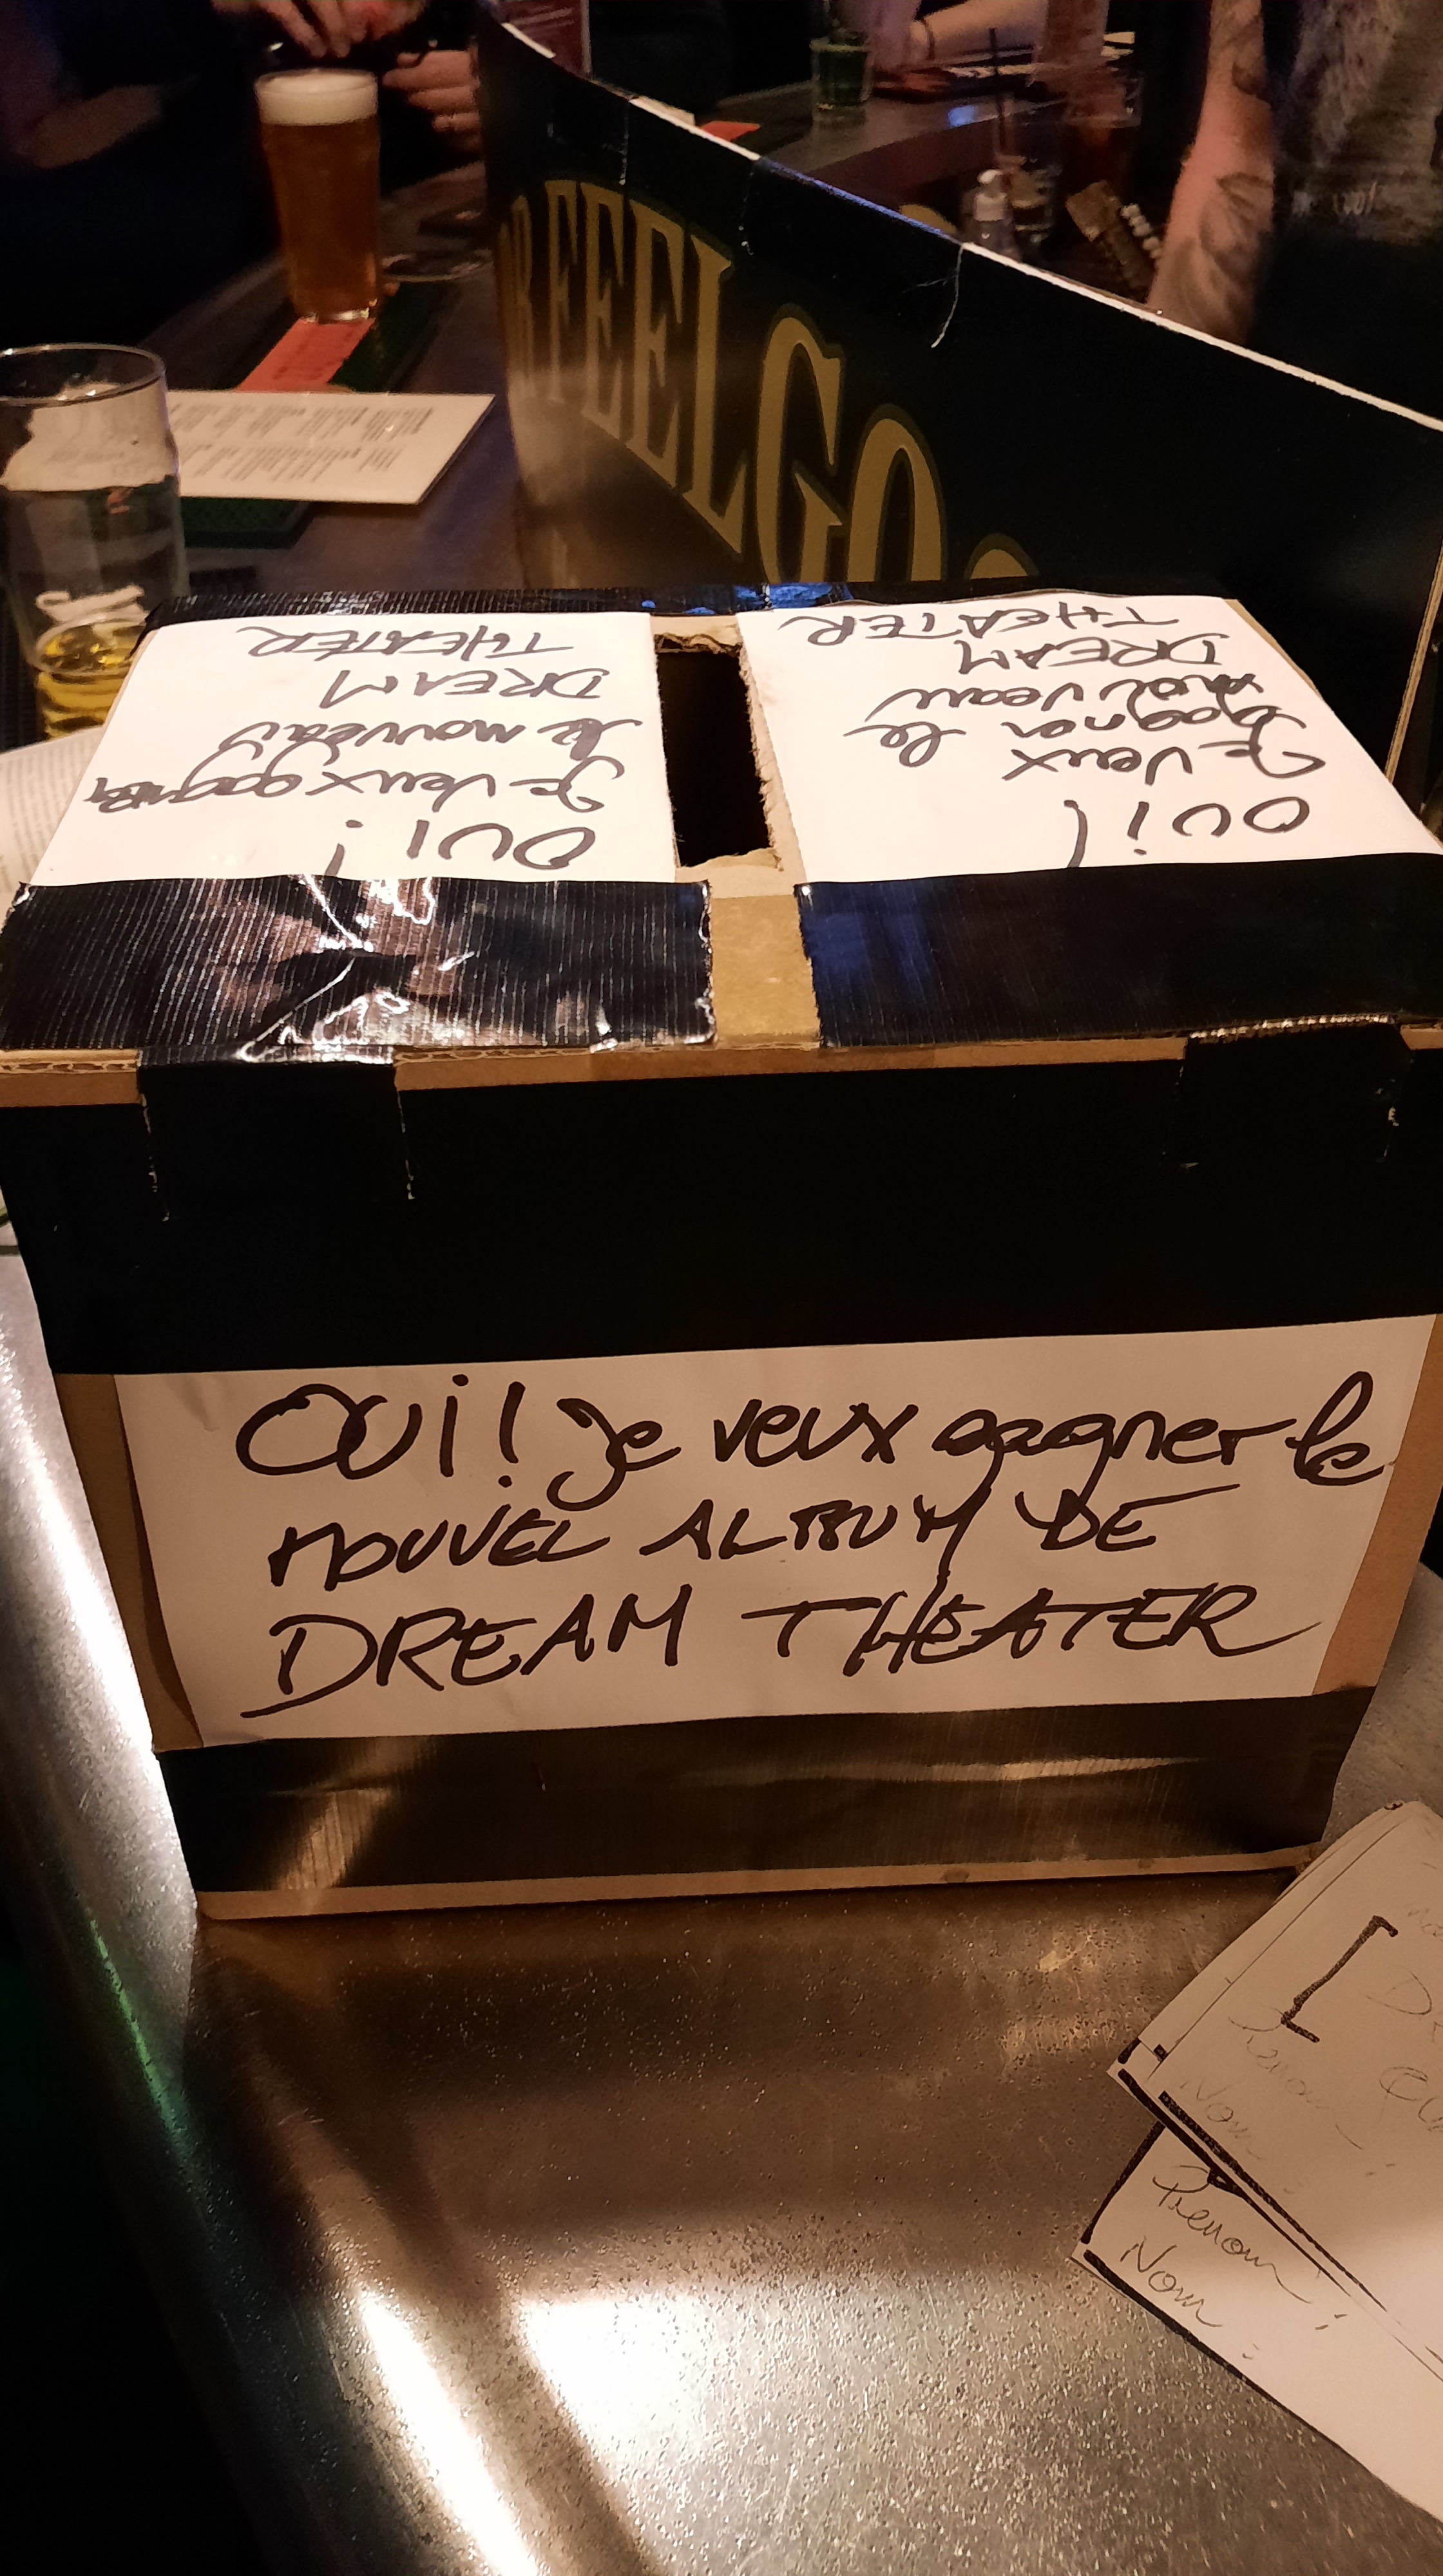 R FEELGO
OUi!
Je veux gagner
le nouveau
DREAM
THEATER
OUi!
Je veux
gagner le
nouveau
DREAM
THEATER
OUi! Je veux gagner le
NOUVEL ALBUM DE
DREAM THEATER
Prenom
Nom
Prenom :
Nom :